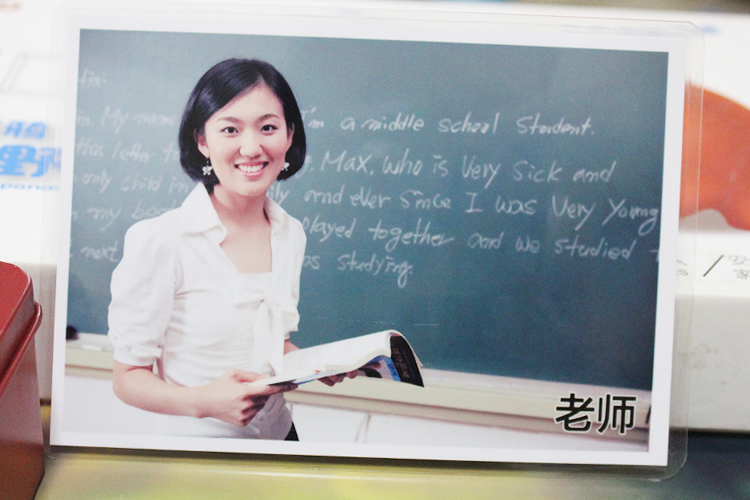 My name I'm a middle school student.
this letter Max, who is Very Sick and
my child and ever since I was Very Young
my played together and we studied
next as studying.
老师
野